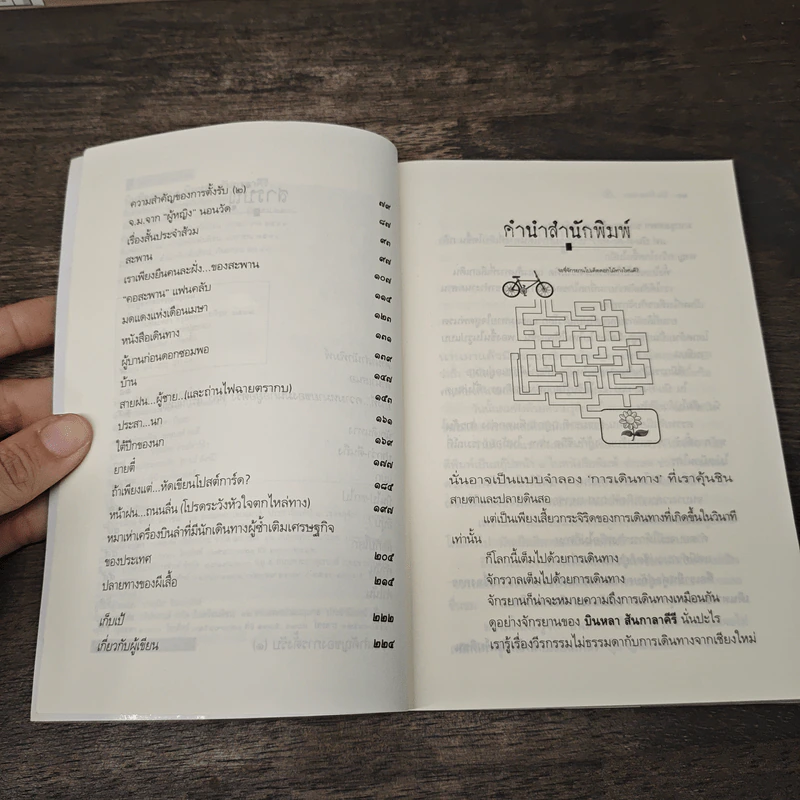 ความสำคัญของการตั้งรับ (๒) ๗๙
จ.ม.จาก "ผู้หญิง" นอนวัด ๘๗
เรื่องสั้นประจำส้วม ๙๓
สะพาน ๙๗
เราเพียงยืนคนละฝั่ง...ของสะพาน ๑๐๗
"คอสะพาน" แฟนคลับ ๑๑๕
มดแดงแห่งเดือนเมษา ๑๒๓
หนังสือเดินทาง ๑๓๑
ผู้บานก่อนดอกซอมพอ ๑๓๙
บ้าน ๑๔๗
สายฝน...ผู้ชาย..(และถ่านไฟฉายตรากบ) ๑๕๓
ประสา...นก ๑๖๑
ใต้ปีกของนก ๑๖๙
ยายตี่ ๑๗๗
ถ้าเพียงแต่...หัดเขียนโปสต์การ์ด? ๑๘๕
หน้าฝน...ถนนลื่น (โปรดระวังหัวใจตกไหล่ทาง) ๑๙๗
หมาเห่าเครื่องบินลำที่มีนักเดินทางผู้ซ้ำเติมเศรษฐกิจ
ของประเทศ ๒๐๕
ปลายทางของผีเสื้อ ๒๑๕
เก็บเป้ ๒๒๒
เกี่ยวกับผู้เขียน ๒๒๔
คำนำสำนักพิมพ์
นั่นอาจเป็นแบบจำลอง 'การเดินทาง' ที่เราคุ้นชิน
สายตาและปลายดินสอ
แต่เป็นเพียงเสี้ยวกระจิริดของการเดินทางที่เกิดขึ้นในวินาที
เท่านั้น
ก็โลกนี้เต็มไปด้วยการเดินทาง
จักรวาลเต็มไปด้วยการเดินทาง
จักรยานก็น่าจะหมายความถึงการเดินทางเหมือนกัน
ดูอย่างจักรยานของ บินหลา สันกาลาคีรี นั่นปะไร
เรารู้เรื่องวีรกรรมไม่ธรรมดากับการเดินทางจากเชียงใหม่